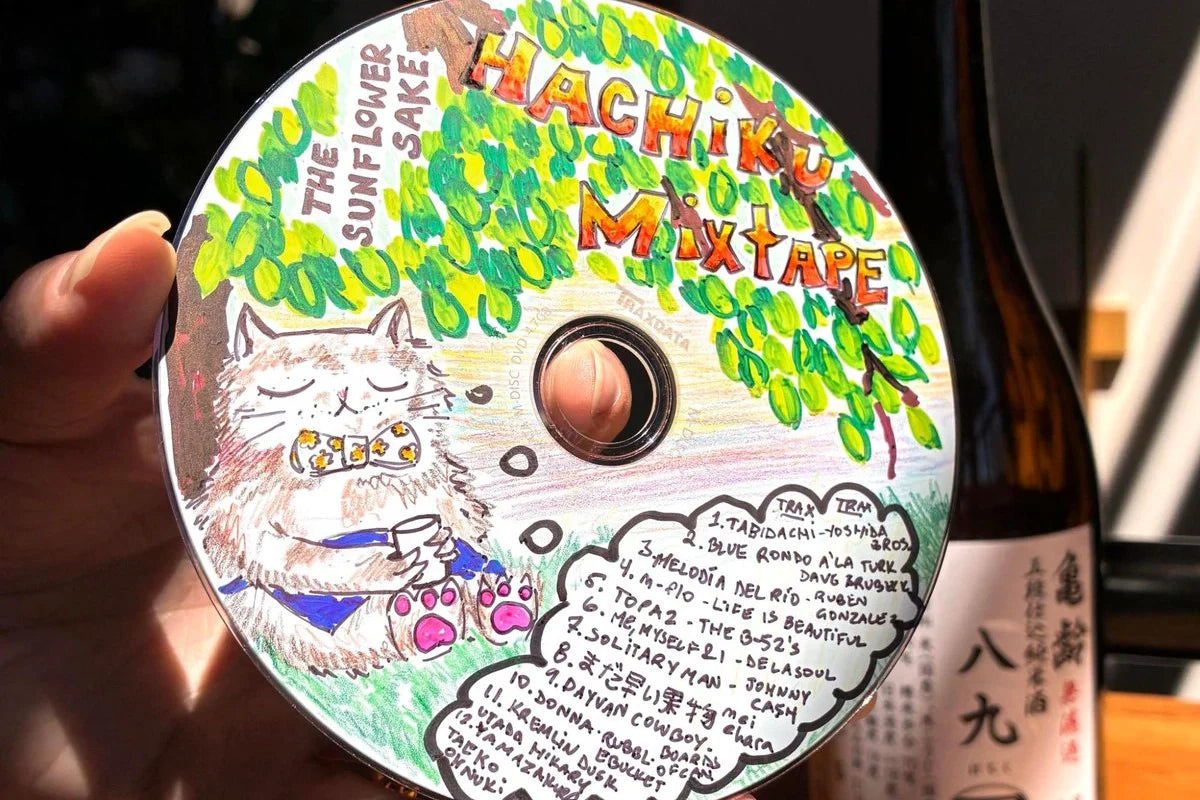 THE
SUNFLOWER
SAKE
HACHiKU
MiXTAPE
TRAXDATA
TRAX TRAX
1. TABIDACHI - YOSHIDA
BROS.
2. BLUE RONDO À LA TURK
DAVG BRUBECK
3. MELODÍA DEL RÍO - RUBEN
GONZALEZ
4. M-FLO - LIFE IS BEAUTIFUL
5. TOPAZ - THE B-52's
6. ME, MYSELF & I - DE LA SOUL
7. SOLITARY MAN - JOHNNY
CASH
8. まだ早い果物 mei
ehara
9. DAYVAN COWBOY -
BOARDS
OF CAN
10. DONNA - RUBBL
BUCKET
11. KREMLIN DUSK
UTADA HIKARU
12. YAMAZAKURA
TAEKO
OHNUKI
亀齢
五段仕込純米酒
八九
はちく